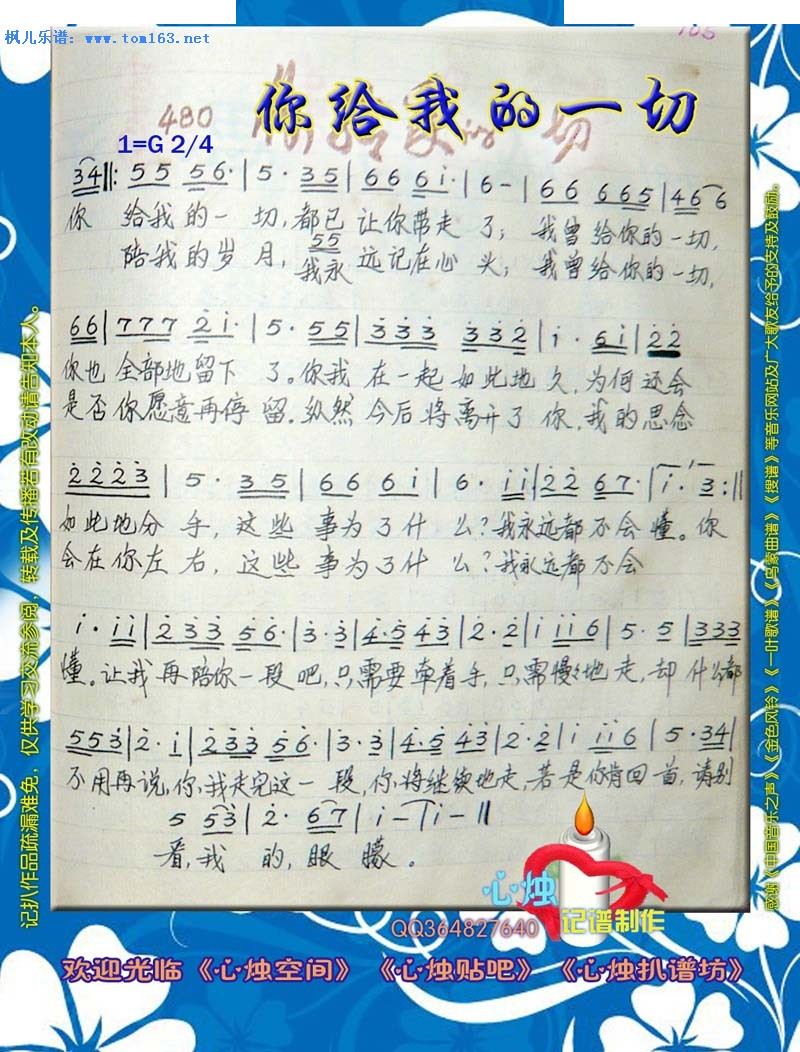 枫儿乐谱：www.tom163.net
105
480
你给我的一切
1=G 2/4
34 ‖: 55 56· | 5· 35 | 66 6i· | 6- | 66 665 | 466
你 给我的一 切，都已 让你带走 了；我曾给你的一切，
55
陪我的岁 月，我永 远记在心 头；我曾给你的一切，
66 | 777 2̇i· | 5· 55 | 3̇3̇3̇ 3̇3̇2̇ | i· 6i | 2̇2̇
你也 全部地留下 了。你我 在一起如此地 久，为何还会
是否 你愿意再停 留。纵然 今后将离开了 你，我的思念
2̇2̇2̇3̇ | 5· 35 | 66 6i | 6· ii | 2̇2̇ 67· | i· 3̇ :‖
如此地分 手，这些 事为了什 么？我永远都不会 懂。你
会在你左 右，这些 事为了什 么？我永远都不会
i· ii | 2̇3̇3̇ 5̇6· | 3̇·3̇ | 4̇·5̇ 4̇3̇ | 2̇·2̇ | i ii6 | 5·5 | 3̇3̇3̇
懂。让我 再陪你一段 吧，只需要牵着 手，只需慢々地 走，却 什么都
553̇ | 2̇·i | 2̇3̇3̇ 5̇6· | 3̇·3̇ | 4̇·5̇ 4̇3̇ | 2̇·2̇ | i ii6 | 5·34 |
不用再说，你，我走完这一 段，你，将继续地走，若是你肯回首，请别
5 53̇ | 2̇· 67 | i- | i- ‖
看，我 的，眼 朦。
心烛
QQ364827640
记谱制作
欢迎光临《心烛空间》《心烛贴吧》《心烛扒谱坊》
记扒作品疏漏难免，仅供学习交流参阅，转载及传播若有改动请告知本人。
感谢《中国音乐之声》《金色风铃》《一叶歌谱》《乌蒙曲谱》《搜谱》等音乐网站及广大歌友给予的支持及鼓励。